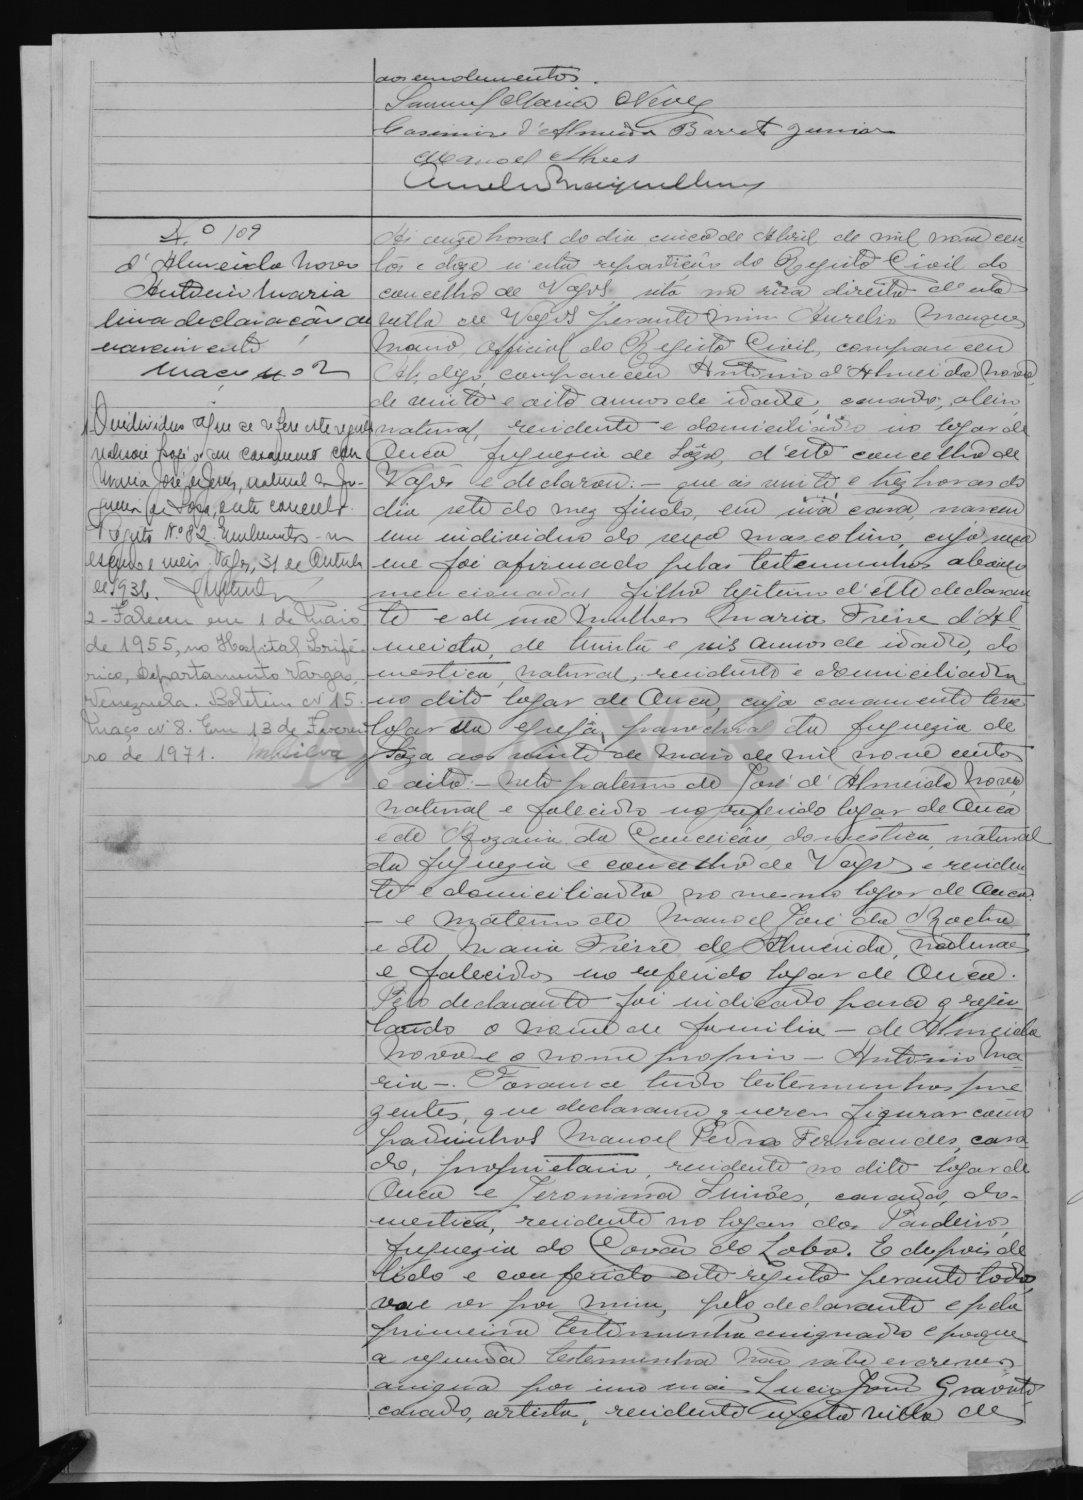 aos emolumentos.
Samuel Maria Neves
Casimiro d'Almeida Barreto Junior
Manoel Alves
Nº 109
d'Almeida Novo
Antonio Maria
uma declaração de
nascimento
Maço nº 2
1. O individuo a que se refere este registo
casamento com
Maria José de Jesus, natural da fre-
guesia de Sosa, deste concelho.
Registo Nº 82. Emolumentos - um
escudo e meio. Vagos, 31 de Outubro
de 1936.
2 - Faleceu em 1 de Maio
de 1955, no Hospital Perifé-
rico, Departamento Vargas,
Venezuela. Boletim nº 15.
Maço nº 8. Em 13 de Feverei-
ro de 1971. MSilva
As onze horas do dia cinco de Abril de mil nove cen-
tos e doze n'esta repartição do Registo Civil do
concelho de Vagos, sita na rua direita d'esta
villa de Vagos perante mim Aurelio Marques
Mano, official do Registo Civil, compareceu
Ah, digo, compareceu Antonio d'Almeida Novo,
de vinte e oito annos de idade, casado,
natural, residente e domiciliado no logar de
Ouca freguezia de Sôza, d'este concelho de
Vagos e declarou: - que ás vinte e trez horas do
dia sete do mez findo, em sua casa, nasceu
um individuo do sexo masculino, cujo sexo
me foi afirmado pelas testemunhas abaixo
mencionadas filho legitimo d'elle declaran-
te e de sua mulher Maria Freire d'Al-
meida, de trinta e seis annos de idade, do-
mestica, natural, residente e domiciliada
no dito logar de Ouca, cujo casamento teve
logar na egreja parochial da freguezia de
Sôza aos vinte de maio de mil nove centos
e oito: - neto paterno de José d'Almeida Novo,
natural e falecido no referido logar de Ouca
e de Rozaria da Conceição, domestica, natural
da freguezia e concelho de Vagos e residen-
te e domiciliada no mesmo logar de Ouca:
- e materno de Manoel José da Rocha
e de Maria Freire de Almeida, naturaes
e falecidos no referido logar de Ouca.
Pelo declarante foi indicado para o regis-
tando o nome de familia - de Almeida
Novo e o nome proprio - Antonio Ma-
ria -. Foram a tudo testemunhas pre-
zentes, que declararam querer figurar como
padrinhos Manoel Pedro Fernandes, casa-
do, proprietario, residente no dito logar de
Ouca e Jeronima Simões, casada, do-
mestica, residente no logar dos Pardeiros
freguezia do Covão do Lobo. E depois de
lido e conferido este registo perante todos
vae ser por mim, pelo declarante e pela
primeira testemunha assignado e porque
a segunda testemunha não sabe escrever
assigna por sua mãe Lucio João Gravato
casado, artista, residente n'esta villa de